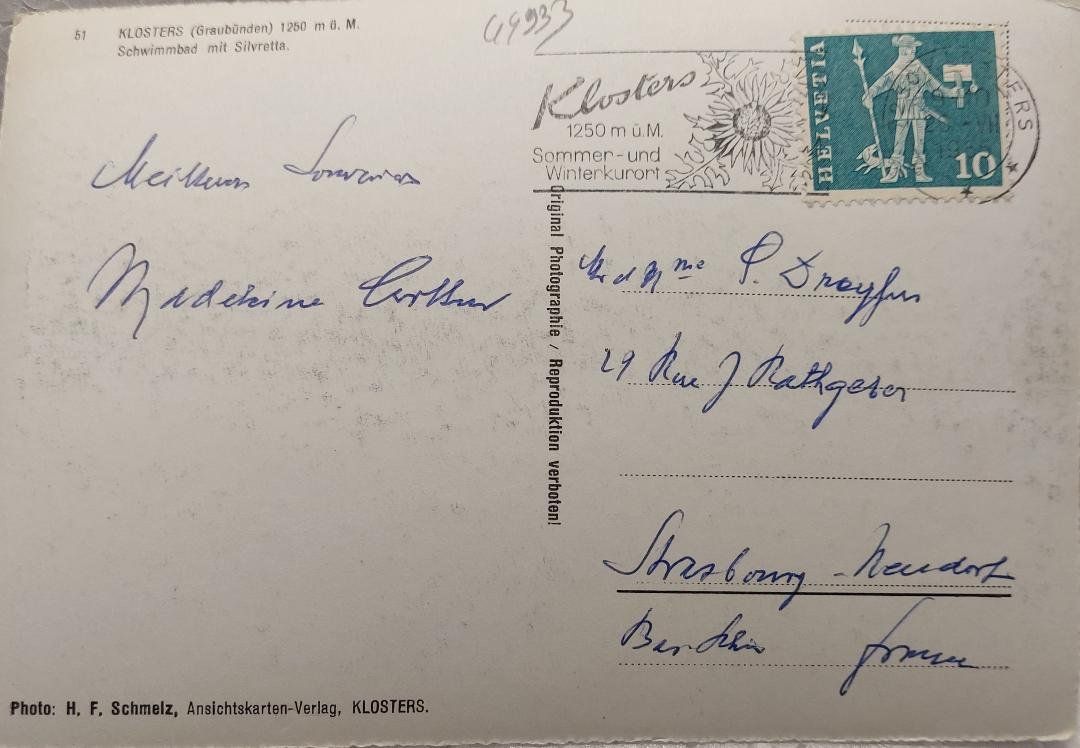 51 KLOSTERS (Graubünden) 1250 m ü. M.
Schwimmbad mit Silvretta.
Klosters
1250 m ü.M.
Sommer-und
Winterkurort
HELVETIA
10
Meilleurs Souvenirs
Madeleine
Original Photographie / Reproduktion verboten!
M et Mme P. Dreyfus
29 Rue J Rathgeber
Strasbourg - Neudorf
Bas-Rhin France
Photo: H. F. Schmelz, Ansichtskarten-Verlag, KLOSTERS.